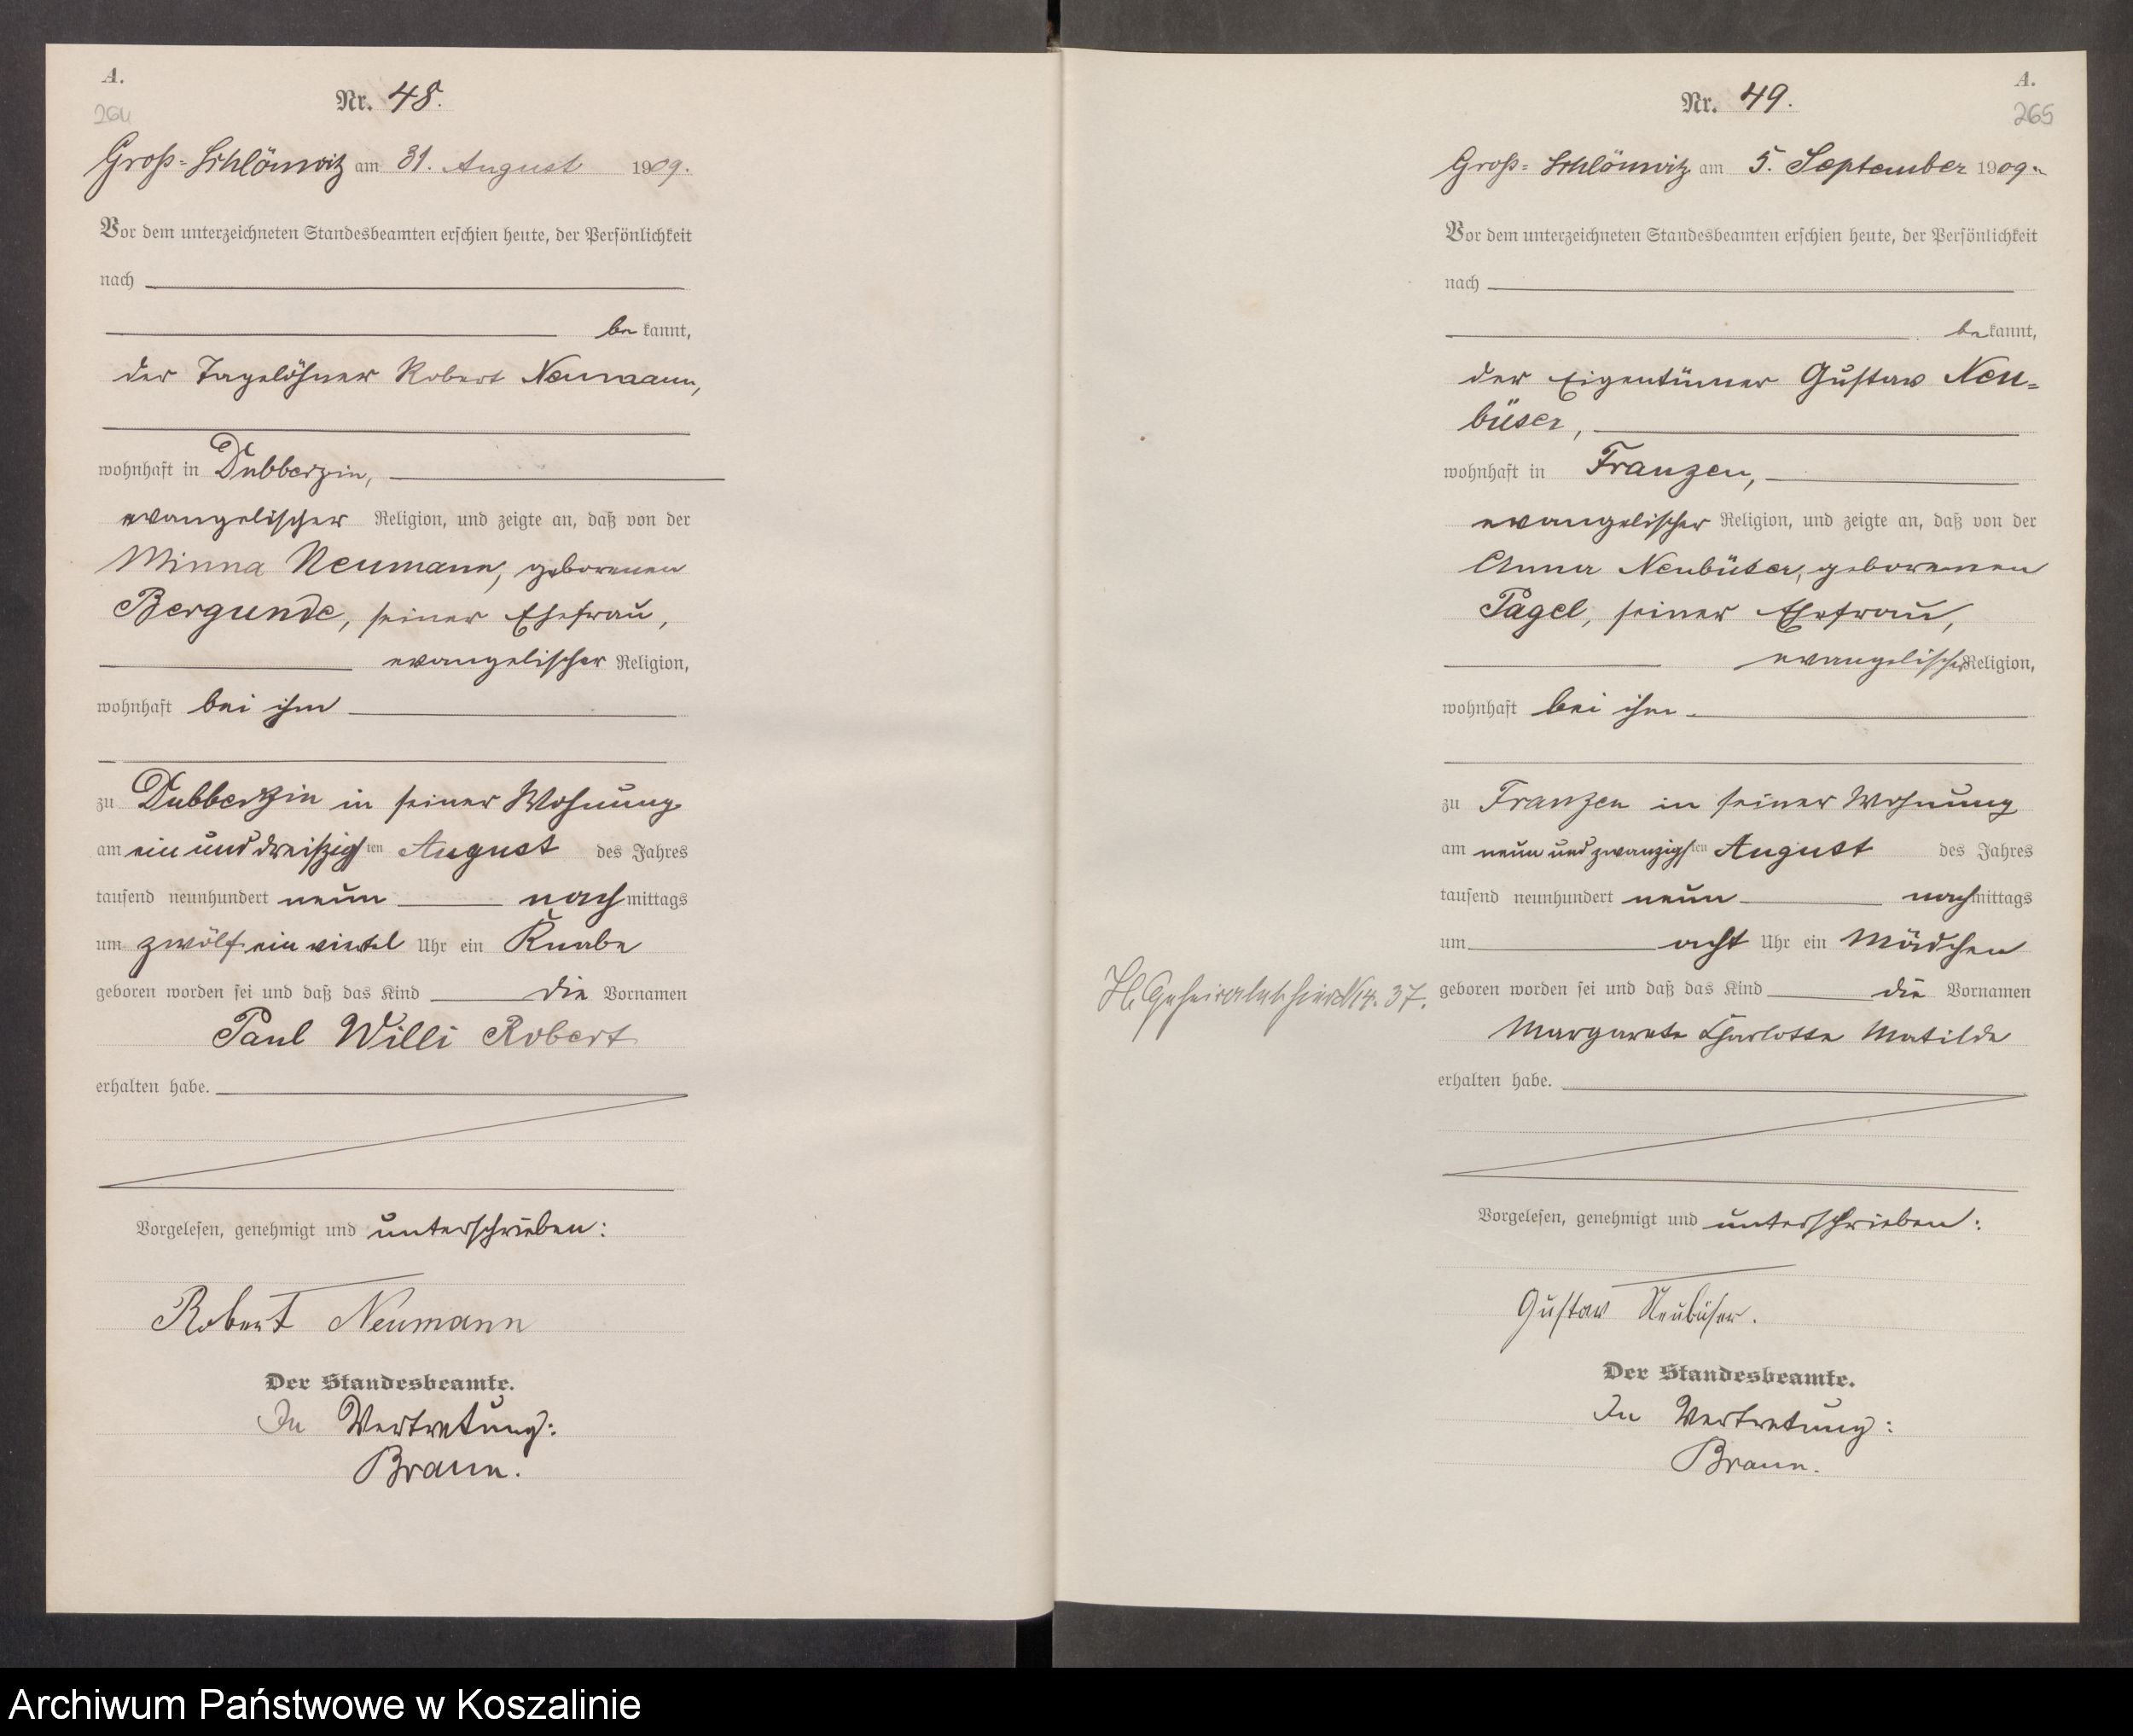 A.
264
Nr. 48.
Groß-Schlönwitz am 31. August 1909.
Vor dem unterzeichneten Standesbeamten erschien heute, der Persönlichkeit
nach
bekannt,
der Tagelöhner Robert Neumann,
wohnhaft in Dubberzin,
evangelischer Religion, und zeigte an, daß von der
Minna Neumann, geborenen
Bergunde, seiner Ehefrau,
evangelischer Religion,
wohnhaft bei ihm
zu Dubberzin in seiner Wohnung
am ein und dreißigsten August des Jahres
tausend neunhundert neun nachmittags
um zwölf ein viertel Uhr ein Knabe
geboren worden sei und daß das Kind die Vornamen
Paul Willi Robert
erhalten habe.
Vorgelesen, genehmigt und unterschrieben:
Robert Neumann
Der Standesbeamte.
In Vertretung:
Braun.
A.
265
Nr. 49.
Groß-Schlönwitz am 5. September 1909.
Vor dem unterzeichneten Standesbeamten erschien heute, der Persönlichkeit
nach
bekannt,
der Eigentümer Gustav Neu=
büser,
wohnhaft in Franzen,
evangelischer Religion, und zeigte an, daß von der
Anna Neubüser, geborenen
Pagel, seiner Ehefrau,
evangelischer Religion,
wohnhaft bei ihm
zu Franzen in seiner Wohnung
am neun und zwanzigsten August des Jahres
tausend neunhundert neun nachmittags
um acht Uhr ein Mädchen
geboren worden sei und daß das Kind die Vornamen
Margarete Charlotte Matilde
erhalten habe.
Vorgelesen, genehmigt und unterschrieben:
Gustav Neubüser.
Der Standesbeamte.
In Vertretung:
Braun.
37.
Archiwum Państwowe w Koszalinie